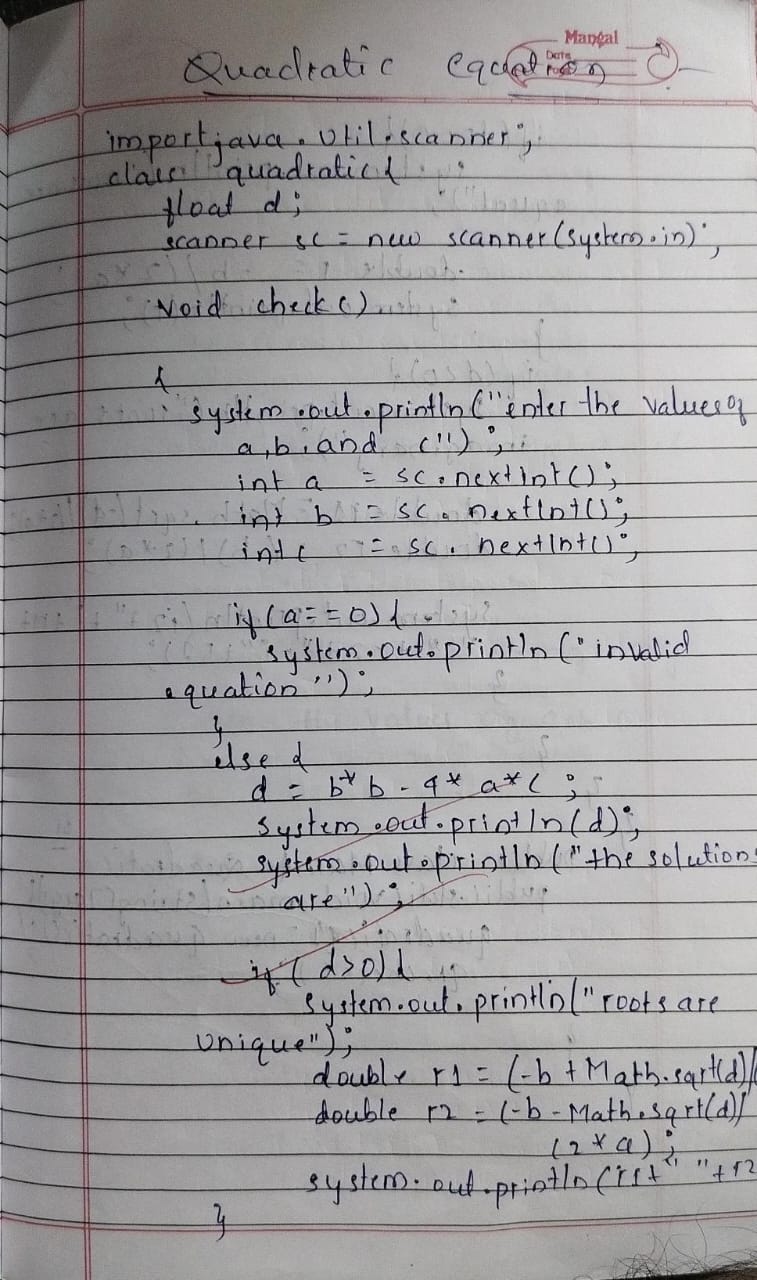 Mangal
Date
Quadratic equation
import java.util.scanner;
class quadratic{
float d;
scanner sc = new scanner(system.in);
void check()
{
system.out.println("enter the values of
a,b,and c");
int a = sc.nextint();
int b = sc.nextInt();
int c = sc.nextInt();
if(a==0){
system.out.println("invalid
equation");
}
else {
d = b*b-4*a*c;
system.out.println(d);
system.out.println("the solution
are");
if(d>0){
system.out.println("roots are
unique");
double r1 = (-b+Math.sqrt(d)/
double r2 = (-b-Math.sqrt(d)/
(2*a);
system.out.println(r1+" "+r2
}